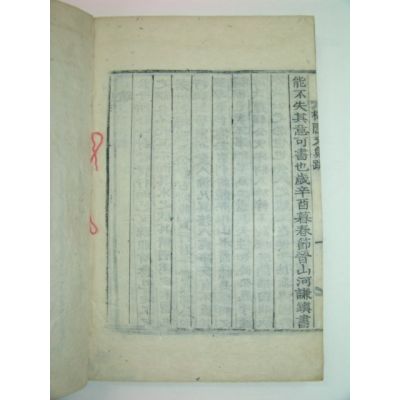 文集跋
能不失其意可書也歲辛酉暮春節晉山河謙鎭書